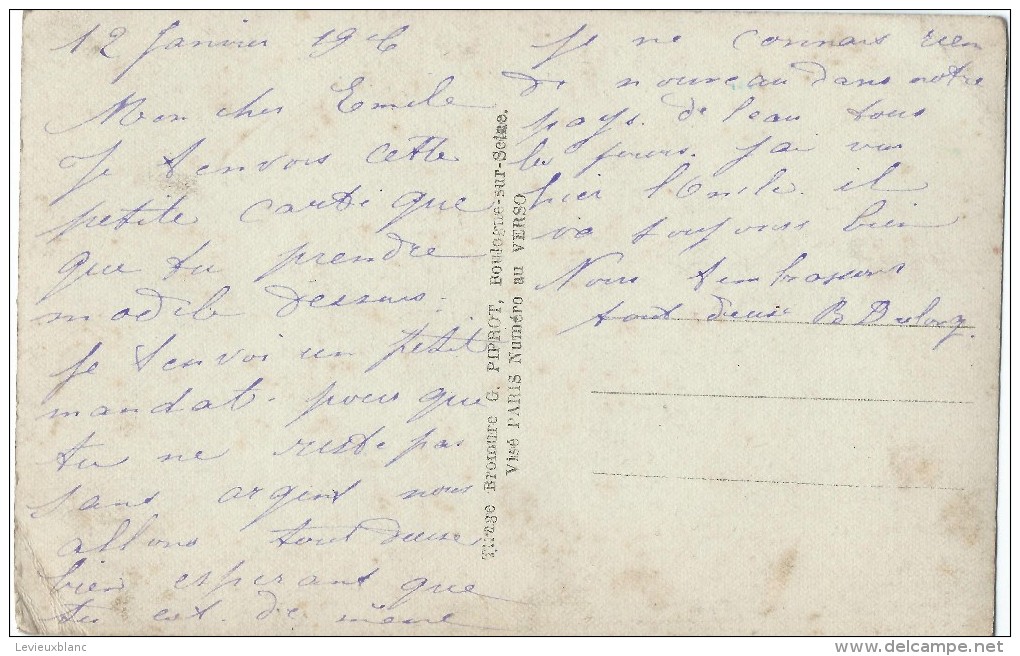 12 Janvier 19
Mon cher Emile
Je t'envois cette
petite carte que
que tu prendre
modile dessus.
Je t'envoi un petit
mandat. pour que
tu ne reste pas
sans argent nous
allons tout deux
bien esperant que
tu est. de même
Je ne connais rien
de nouveau dans notre
pays. de l'eau tous
les jours. J'ai vus
hier l'Oncle. il
va toujours bien
Nous t'embrassons
tout deux B
Tirage Bromure G. PIPROT, Boulogne-sur-Seine.
Visé PARIS Numéro au VERSO
Levieuxblanc
delcampe.net